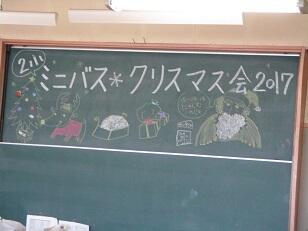 2小 ミニバス* クリスマス会2017